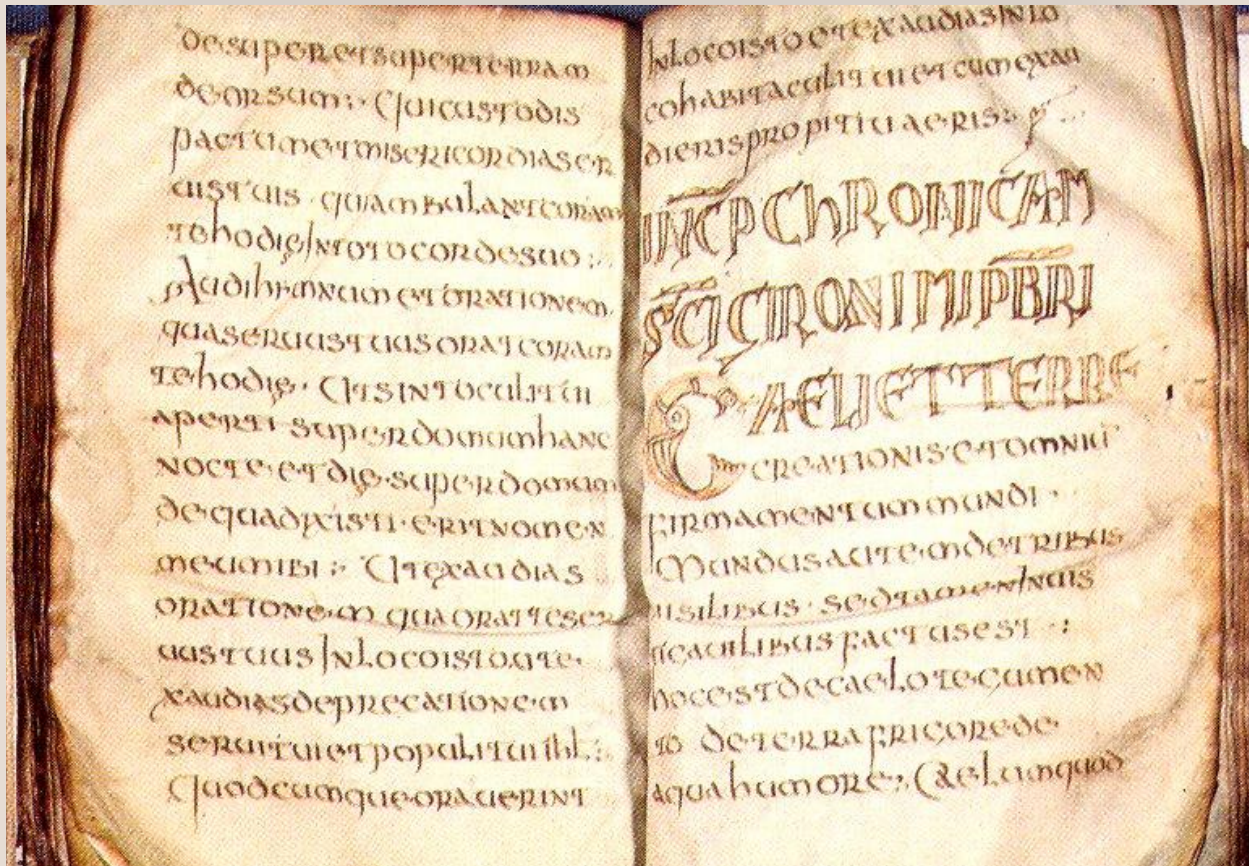 desuperetsuperterram
deorsum:· Quicustodis
pactumetmisericordiaser
uistuis · quiambulantcoram
tehodie Intotocordesuo :.
Audihymnum etorationem
quaseruustuusoratcoram
tehodie · Utsintoculitui
aperti superdomumhanc
nocte · etdie · superdomum
dequadixisti · eritnomen
meumibi :· Utexaudias
orationem quaoratteser
uustuus Inlocoistoute
xaudiasdeprecationem
seruituietpopulituiihl :.
Quodcumqueorauerint
Inlocoistoetexaudias Inlo
cohabitaculituietcumexau
dierispropitiuaeris :·
INCP CHRONICAM
SCI GIRONIMI PBRI
CAELIETTERRE
creationis · etomniu
firmamentummundi ·
Mundusautemdetribus
uisilibus · sedtamen Inuis
hocestdecaelo
to deterrafricorede
aquahumore :· Caelumquod